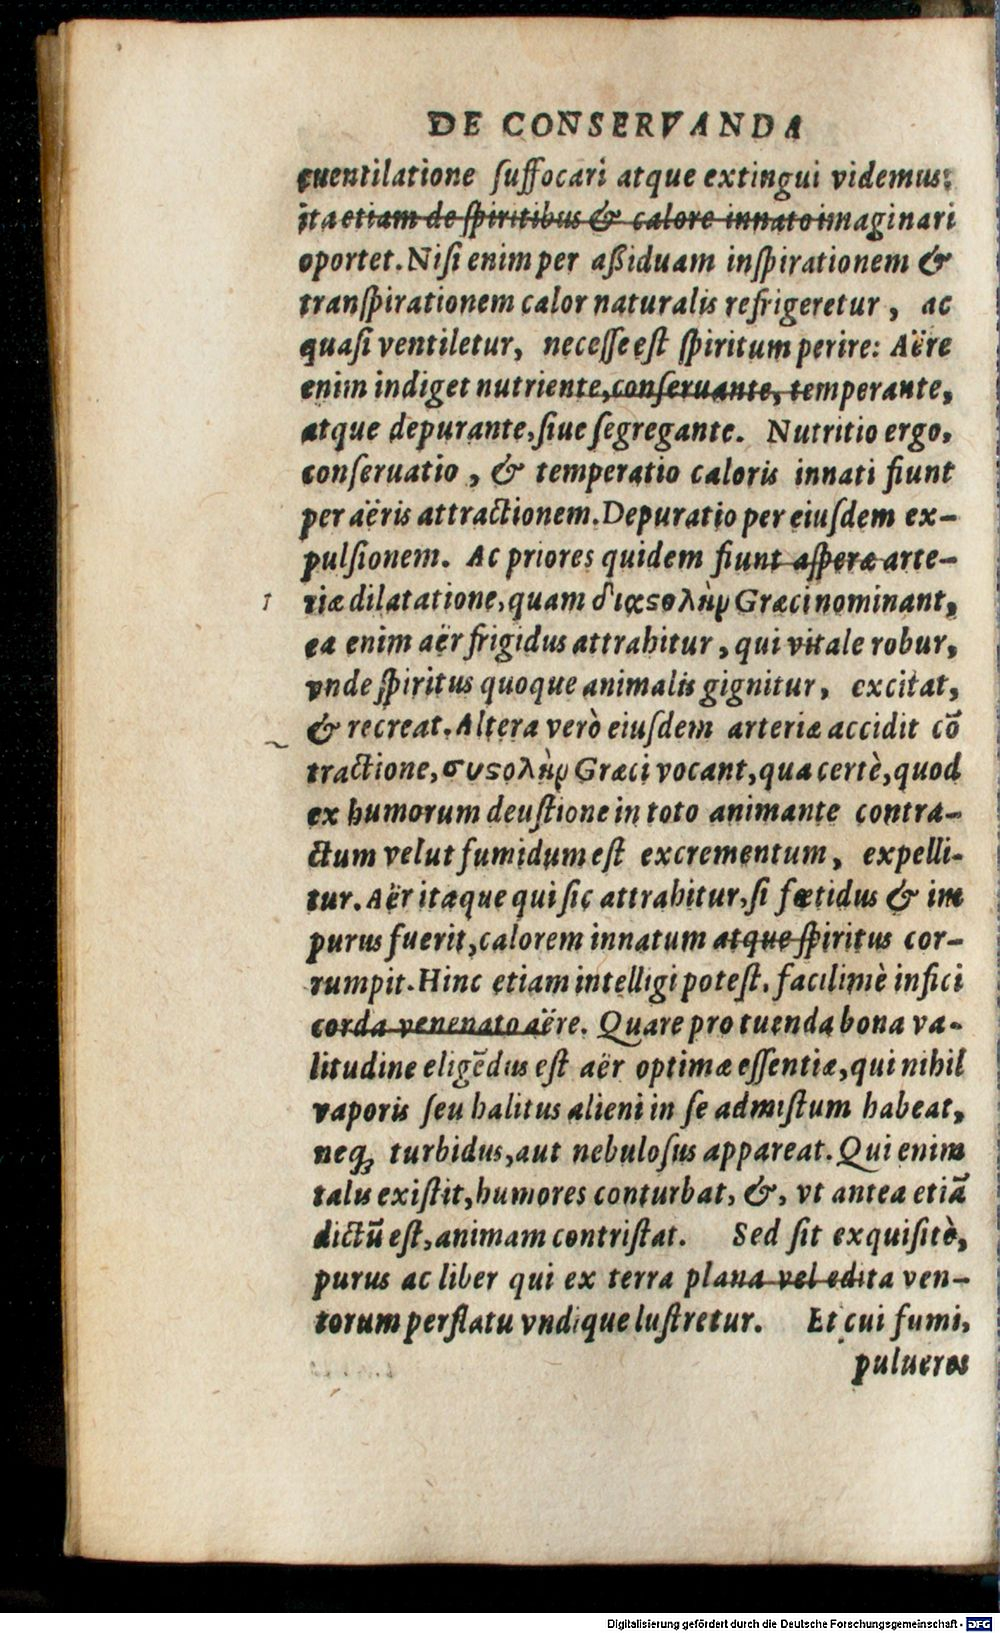 DE CONSERVANDA
euentilatione ſuffocari atque extingui videmus:
ita etiam de ſpiritibus & calore innato imaginari
oportet. Niſi enim per aßiduam inſpirationem &
tranſpirationem calor naturalis refrigeretur, ac
quaſi ventiletur, neceſſe eſt ſpiritum perire: Aëre
enim indiget nutriente, conſeruante, temperante,
atque depurante, ſiue ſegregante. Nutritio ergo,
conſeruatio, & temperatio caloris innati fiunt
per aëris attractionem. Depuratio per eiuſdem ex-
pulſionem. Ac priores quidem fiunt aſperæ arte-
1 riæ dilatatione, quam διαϛολὴν Græci nominant,
ea enim aër frigidus attrahitur, qui vitale robur,
vnde ſpiritus quoque animalis gignitur, excitat,
& recreat. Altera verò eiuſdem arteriæ accidit cō
tractione, συϛολὴν Græci vocant, qua certè, quod
ex humorum deuſtione in toto animante contra-
ctum velut fumidum eſt excrementum, expelli-
tur. Aër itaque qui ſic attrahitur, ſi fœtidus & im
purus fuerit, calorem innatum atque ſpiritus cor-
rumpit. Hinc etiam intelligi poteſt, facilimè infici
corda venenato aëre. Quare pro tuenda bona va-
litudine eligēdus eſt aër optimæ eſſentiæ, qui nihil
vaporis ſeu halitus alieni in ſe admiſtum habeat,
neq; turbidus, aut nebuloſus appareat. Qui enim
talis exiſtit, humores conturbat, &, vt antea etiā
dictū eſt, animam contriſtat. Sed ſit exquiſitè,
purus ac liber qui ex terra plana vel edita ven-
torum perflatu vndique luſtretur. Et cui fumi,
pulueres
Digitalisierung gefördert durch die Deutsche Forschungsgemeinschaft - DFG